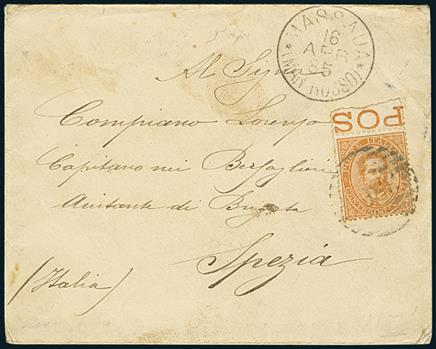 MASSAUA
16
APR
85
(MAR ROSSO)
POS
Al Signor
Compiano Lorenzo
Capitano nei Bersaglieri
Aiutante di Brigata
Spezia
(Italia)